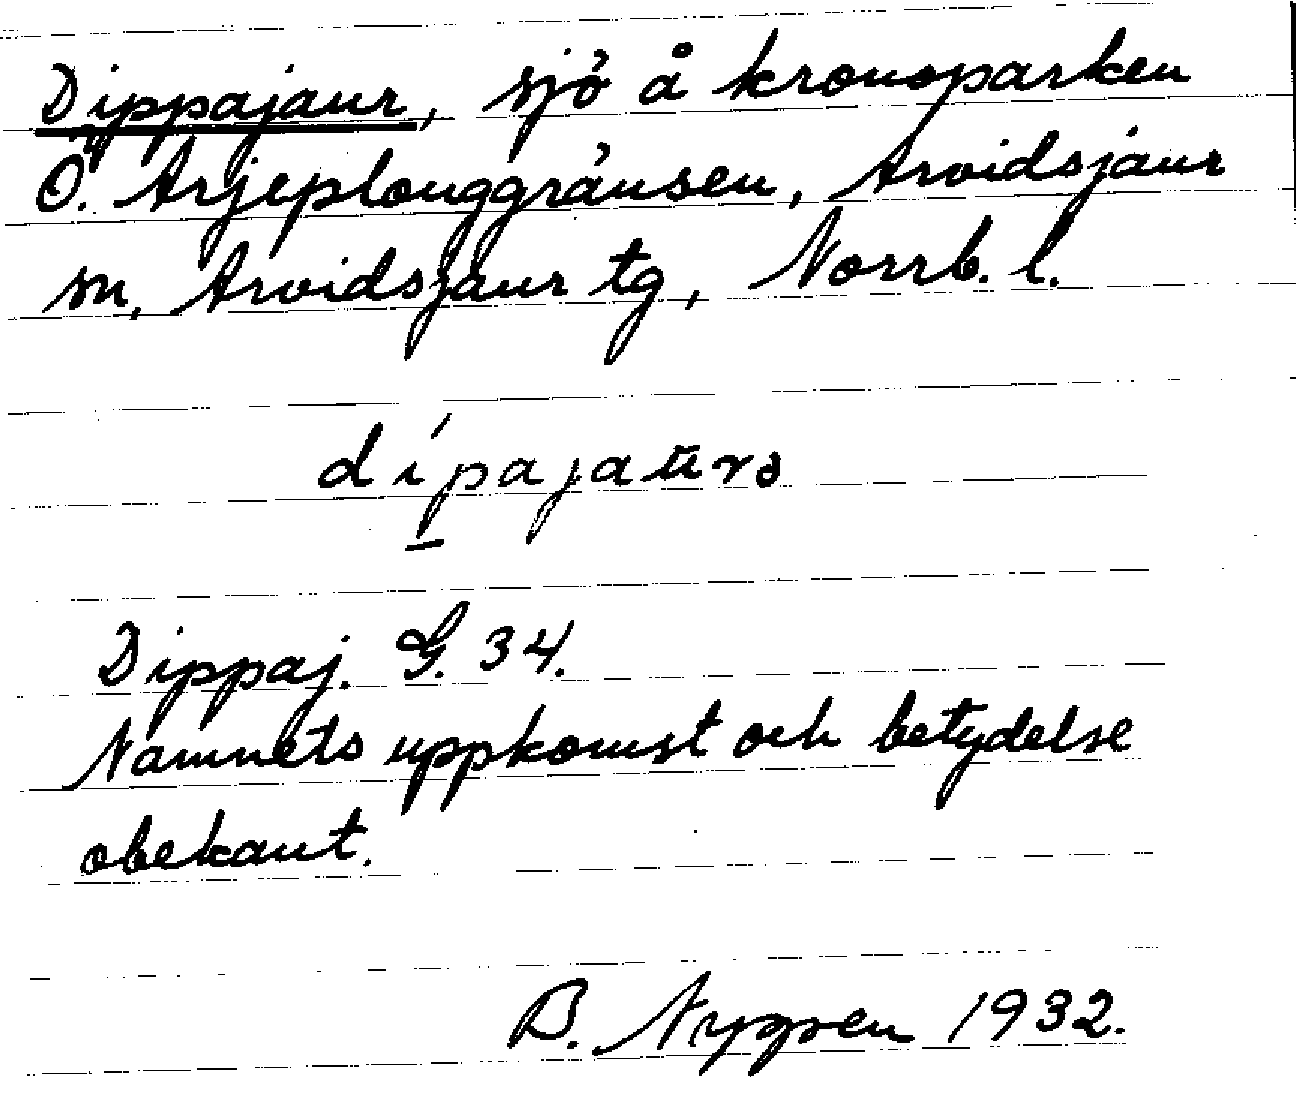 Dippajaur, sjö å kronoparken
Ö. Arjeplouggränsen, Arvidsjaur
sn, Arvidsjaur tg, Norrb. l.
dípajaūrə
Dippaj. G. 34.
Namnets uppkomst och betydelse
obekant.
B. Nygren 1932.